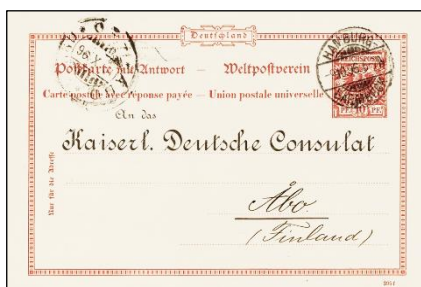 Deutschland
Postkarte mit Antwort — Weltpostverein
Carte postale avec réponse payée — Union postale universelle
An das
Kaiserl. Deutsche Consulat
Nur für die Adresse
Åbo.
(Finland)
HAMBURG
REICHSPOST
10 PF. 10 PF.